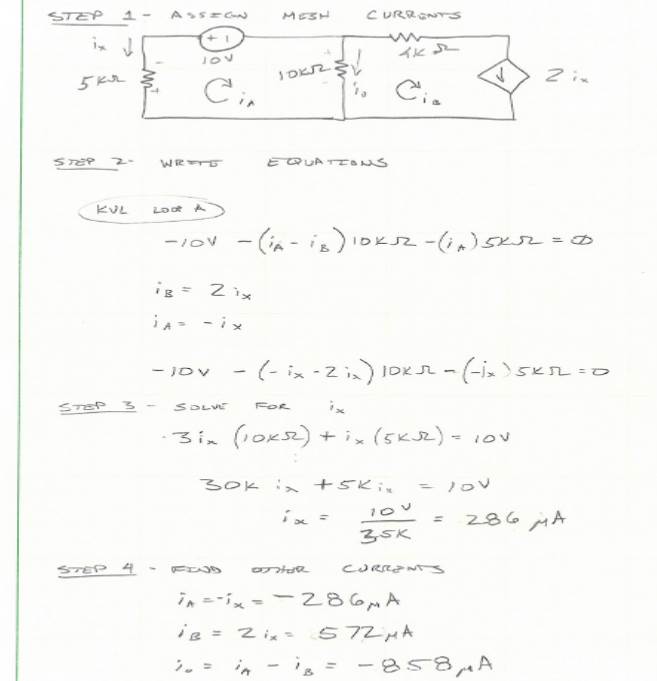 STEP 1 - ASSIGN MESH CURRENTS
ix ↓
+ -
10V
5KΩ
iA
10KΩ
io
4KΩ
iB
2 ix
STEP 2- WRITE EQUATIONS
KVL LOOP A
-10V - (iA - iB) 10KΩ - (iA) 5KΩ = 0
iB = 2 ix
iA = - ix
-10V - (-ix - 2 ix) 10KΩ - (-ix) 5KΩ = 0
STEP 3 - SOLVE FOR ix
3ix (10KΩ) + ix (5KΩ) = 10V
30K ix + 5K ix = 10V
ix = 10V / 35K = 286 μA
STEP 4 - FIND OTHER CURRENTS
iA = -ix = -286μA
iB = 2 ix = 572μA
io = iA - iB = -858μA